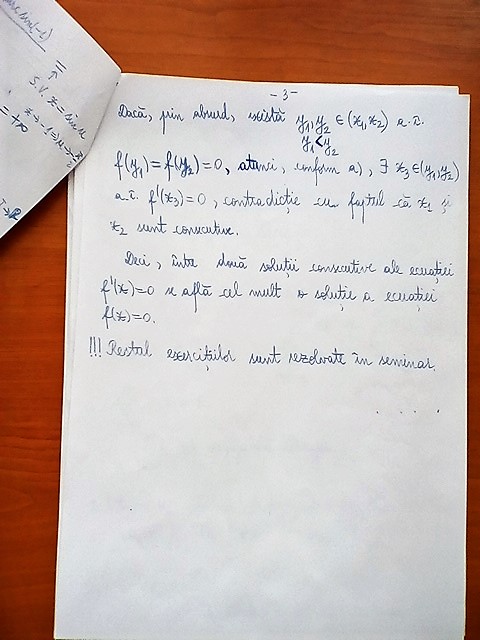 S.V. x = sin u
- 3 -
Dacă, prin absurd, există y₁, y₂ ∈ (x₁, x₂) a. î.
y₁ < y₂
f(y₁) = f(y₂) = 0, atunci, conform a), ∃ x₃ ∈ (y₁, y₂)
a. î. f'(x₃) = 0, contradicție cu faptul că x₁ și
x₂ sunt consecutive.
Deci, între două soluții consecutive ale ecuației
f'(x) = 0 se află cel mult o soluție a ecuației
f(x) = 0.
!!! Restul exercițiilor sunt rezolvate în seminar.